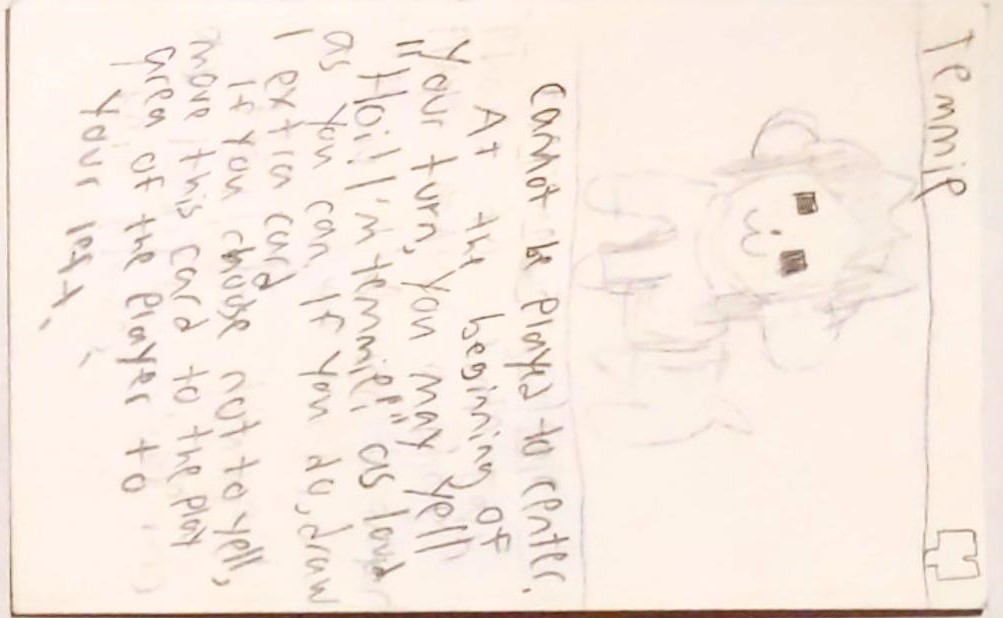 Temmie
cannot be played to center.
At the beginning of
your turn, you may yell
"Hoi! I'm temmie!" as loud
as you can. If you do, draw
1 extra card
If you choose not to yell,
move this card to the play
area of the player to
your left.